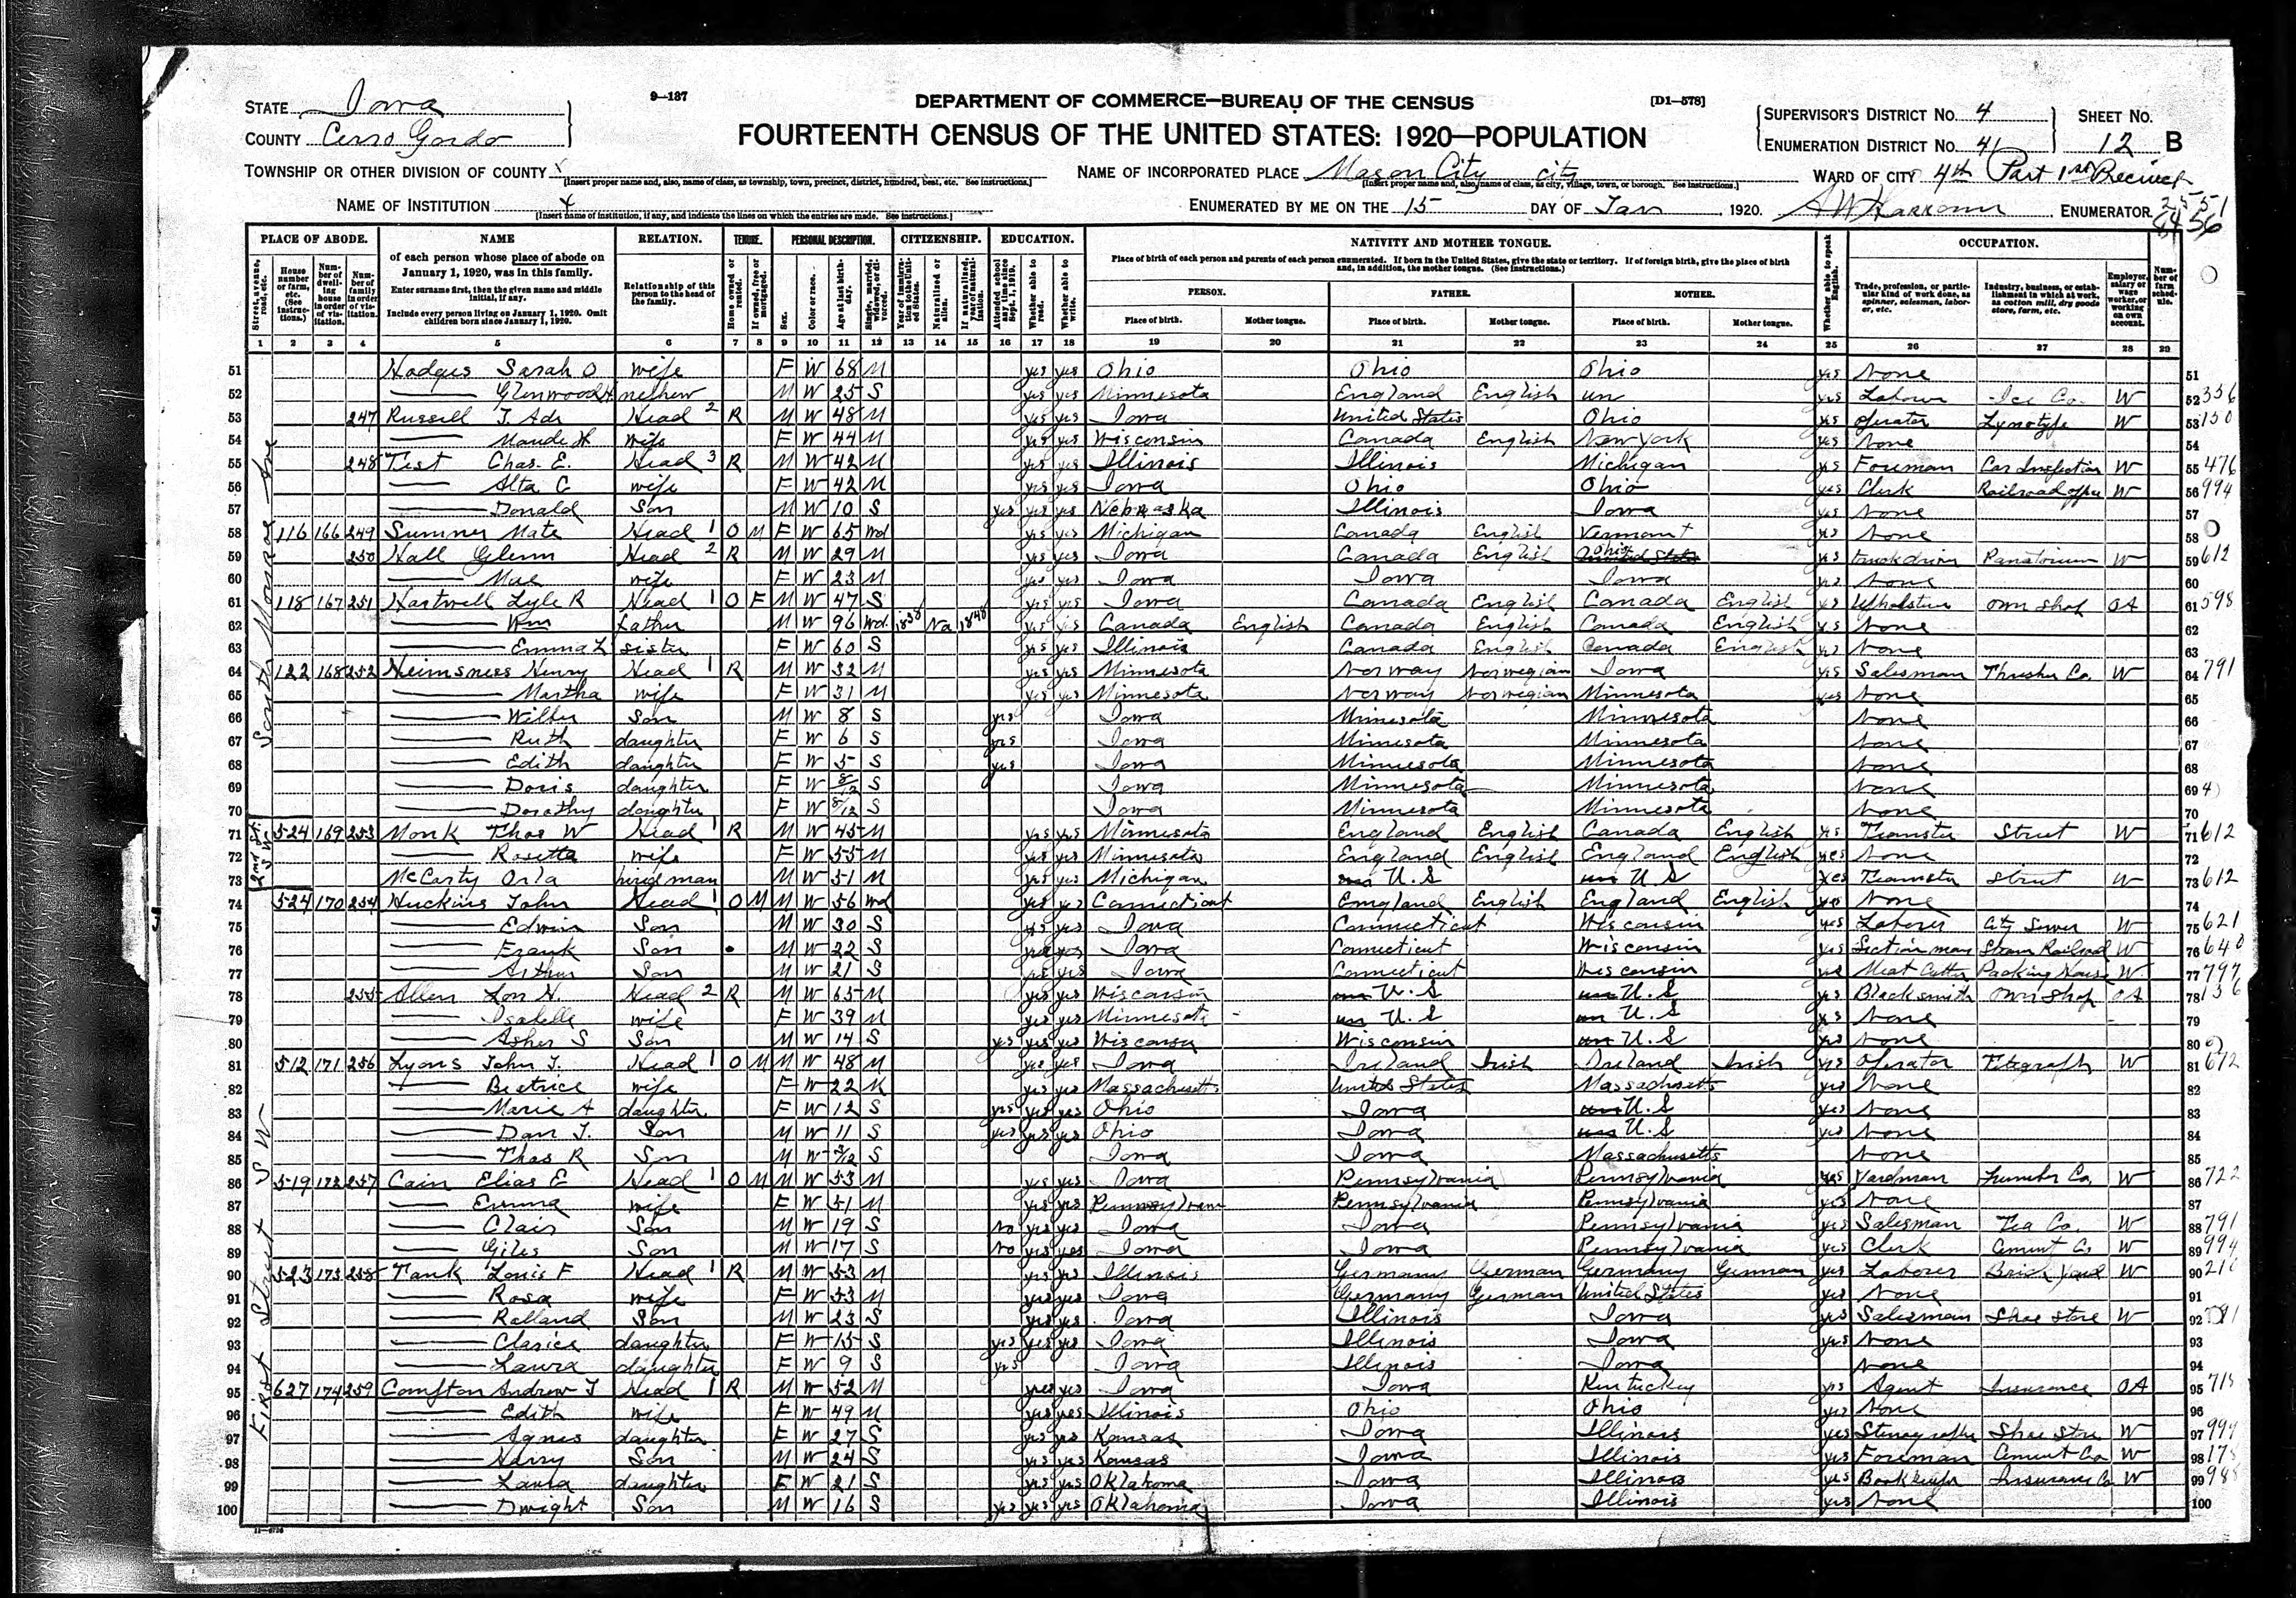 STATE Iowa
COUNTY Cerro Gordo
9—137
DEPARTMENT OF COMMERCE—BUREAU OF THE CENSUS
[D1—578]
FOURTEENTH CENSUS OF THE UNITED STATES: 1920—POPULATION
SUPERVISOR'S DISTRICT No. 4
ENUMERATION DISTRICT No. 41
SHEET No. 12 B
TOWNSHIP OR OTHER DIVISION OF COUNTY x
[Insert proper name and, also, name of class, as township, town, precinct, district, hundred, beat, etc. See instructions.]
NAME OF INCORPORATED PLACE Mason City city
[Insert proper name and, also, name of class, as city, village, town, or borough. See instructions.]
WARD OF CITY 4th Part 1st Precinct
NAME OF INSTITUTION x
[Insert name of institution, if any, and indicate the lines on which the entries are made. See instructions.]
ENUMERATED BY ME ON THE 15 DAY OF Jan, 1920. ENUMERATOR
PLACE OF ABODE. NAME RELATION. TENURE. PERSONAL DESCRIPTION. CITIZENSHIP. EDUCATION. NATIVITY AND MOTHER TONGUE. OCCUPATION.
of each person whose place of abode on January 1, 1920, was in this family.
Enter surname first, then the given name and middle initial, if any.
Include every person living on January 1, 1920. Omit children born since January 1, 1920.
Relationship of this person to the head of the family.
Place of birth of each person and parents of each person enumerated. If born in the United States, give the state or territory. If of foreign birth, give the place of birth and, in addition, the mother tongue. (See instructions.)
PERSON. FATHER. MOTHER.
Place of birth. Mother tongue. Place of birth. Mother tongue. Place of birth. Mother tongue.
1 2 3 4 5 6 7 8 9 10 11 12 13 14 15 16 17 18 19 20 21 22 23 24 25 26 27 28 29
51 Hodges Sarah O wife F W 68 M yes yes Ohio Ohio Ohio yes None 51
52 — Glenwood H nephew M W 25 S yes yes Minnesota England English un yes Laborer Ice Co. W 52 336
53 247 Russell J. Adr Head 2 R M W 48 M yes yes Iowa United States Ohio yes operator Lynotype W 53 130
54 — Maude H wife F W 44 M yes yes Wisconsin Canada English New York yes None 54
55 248 Test Chas. E. Head 3 R M W 42 M yes yes Illinois Illinois Michigan yes Foreman Car Inspection W 55 476
56 — Alta C wife F W 42 M yes yes Iowa Ohio Ohio yes Clerk Railroad office W 56 994
57 — Donald Son M W 10 S yes yes yes Nebraska Illinois Iowa yes None 57
58 116 166 249 Sumner Mate Head 1 O M F W 65 Wd yes yes Michigan Canada English Vermont yes None 58
59 250 Hall Glenn Head 2 R M W 29 M yes yes Iowa Canada English Ohio yes truck driver Panatorium W 59 612
60 — Mae wife F W 23 M yes yes Iowa Iowa Iowa yes None 60
61 118 167 251 Hartwell Lyle R Head 1 O F M W 47 S yes yes Iowa Canada English Canada English yes Upholster own shop OA 61 598
62 — Wm father M W 96 Wd. 1838 Na 1848 yes yes Canada English Canada English Canada English yes None 62
63 — Emma L sister F W 60 S yes yes Illinois Canada English Canada English yes None 63
64 122 168 252 Heimsness Henry Head 1 R M W 32 M yes yes Minnesota Norway Norwegian Iowa yes Salesman Thresher Co. W 64 791
65 — Martha wife F W 31 M yes yes Minnesota Norway Norwegian Minnesota yes None 65
66 — Wilber Son M W 8 S yes Iowa Minnesota Minnesota None 66
67 — Ruth daughter F W 6 S yes Iowa Minnesota Minnesota None 67
68 — Edith daughter F W 5 S yes Iowa Minnesota Minnesota None 68
69 — Doris daughter F W 8/12 S Iowa Minnesota Minnesota None 69
70 — Dorathy daughter F W 8/12 S Iowa Minnesota Minnesota None 70
71 524 169 253 Monk Thos W Head 1 R M W 45 M yes yes Minnesota England English Canada English yes Teamster Street W 71 612
72 — Rosetta wife F W 55 M yes yes Minnesota England English England English yes None 72
73 McCarty Orla hired man M W 51 M yes yes Michigan U.S U.S yes Teamster Street W 73 612
74 524 170 254 Huckins John Head 1 O M M W 56 Wd yes yes Connecticut England English England English yes None 74
75 — Edwin Son M W 30 S yes yes Iowa Connecticut Wisconsin yes Laborer City Sewer W 75 621
76 — Frank Son M W 22 S yes yes Iowa Connecticut Wisconsin yes Section man Steam Railroad W 76 640
77 — Arthur Son M W 21 S yes yes Iowa Connecticut Wisconsin yes Meat Cutter Packing House W 77 797
78 255 Allen Lon H. Head 2 R M W 65 M yes yes Wisconsin U.S U.S yes Blacksmith own shop OA 78 136
79 — Isabelle wife F W 39 M yes yes Minnesota U.S U.S yes None 79
80 — Asher S Son M W 14 S yes yes yes Wisconsin Wisconsin U.S yes None 80
81 512 171 256 Lyons John J. Head 1 O M M W 48 M yes yes Iowa Ireland Irish Ireland Irish yes Operator Telegraph W 81 672
82 — Beatrice wife F W 22 M yes yes Massachusetts United States Massachusetts yes None 82
83 — Marie A daughter F W 12 S yes yes yes Ohio Iowa U.S yes None 83
84 — Dan J. Son M W 11 S yes yes yes Ohio Iowa U.S yes None 84
85 — Thos R Son M W 3/12 S Iowa Iowa Massachusetts None 85
86 519 172 257 Cain Elias E Head 1 O M M W 53 M yes yes Iowa Pennsylvania Pennsylvania yes Yardman Lumber Co. W 86 722
87 — Emma wife F W 51 M yes yes Pennsylvania Pennsylvania Pennsylvania yes None 87
88 — Clair Son M W 19 S No yes yes Iowa Iowa Pennsylvania yes Salesman Tea Co. W 88 791
89 — Giles Son M W 17 S No yes yes Iowa Iowa Pennsylvania yes Clerk Cement Co W 89 994
90 523 173 258 Tank Louis F Head 1 R M W 53 M yes yes Illinois Germany German Germany German yes Laborer Brick Yard W 90 210
91 — Rosa wife F W 53 M yes yes Iowa Germany German United States yes None 91
92 — Rolland Son M W 23 S yes yes Iowa Illinois Iowa yes Salesman Shoe store W 92
93 — Clarice daughter F W 15 S yes yes yes Iowa Illinois Iowa yes None 93
94 — Laura daughter F W 9 S yes Iowa Illinois Iowa None 94
95 627 174 259 Compton Andrew J Head 1 R M W 52 M yes yes Iowa Iowa Kentuckey yes Agent Insurance OA 95
96 — Edith wife F W 49 M yes yes Illinois Ohio Ohio yes None 96
97 — Agnes daughter F W 27 S yes yes Kansas Iowa Illinois yes Stenographer Shoe Store W 97 994
98 — Harry Son M W 24 S yes yes Kansas Iowa Illinois yes Foreman Cement Co W 98
99 — Laura daughter F W 21 S yes yes Oklahoma Iowa Illinois yes Bookkeeper Insurance Co W 99
100 — Dwight Son M W 16 S yes yes yes Oklahoma Iowa Illinois yes None 100
South Monroe Ave
2nd St. S W
First Street S W